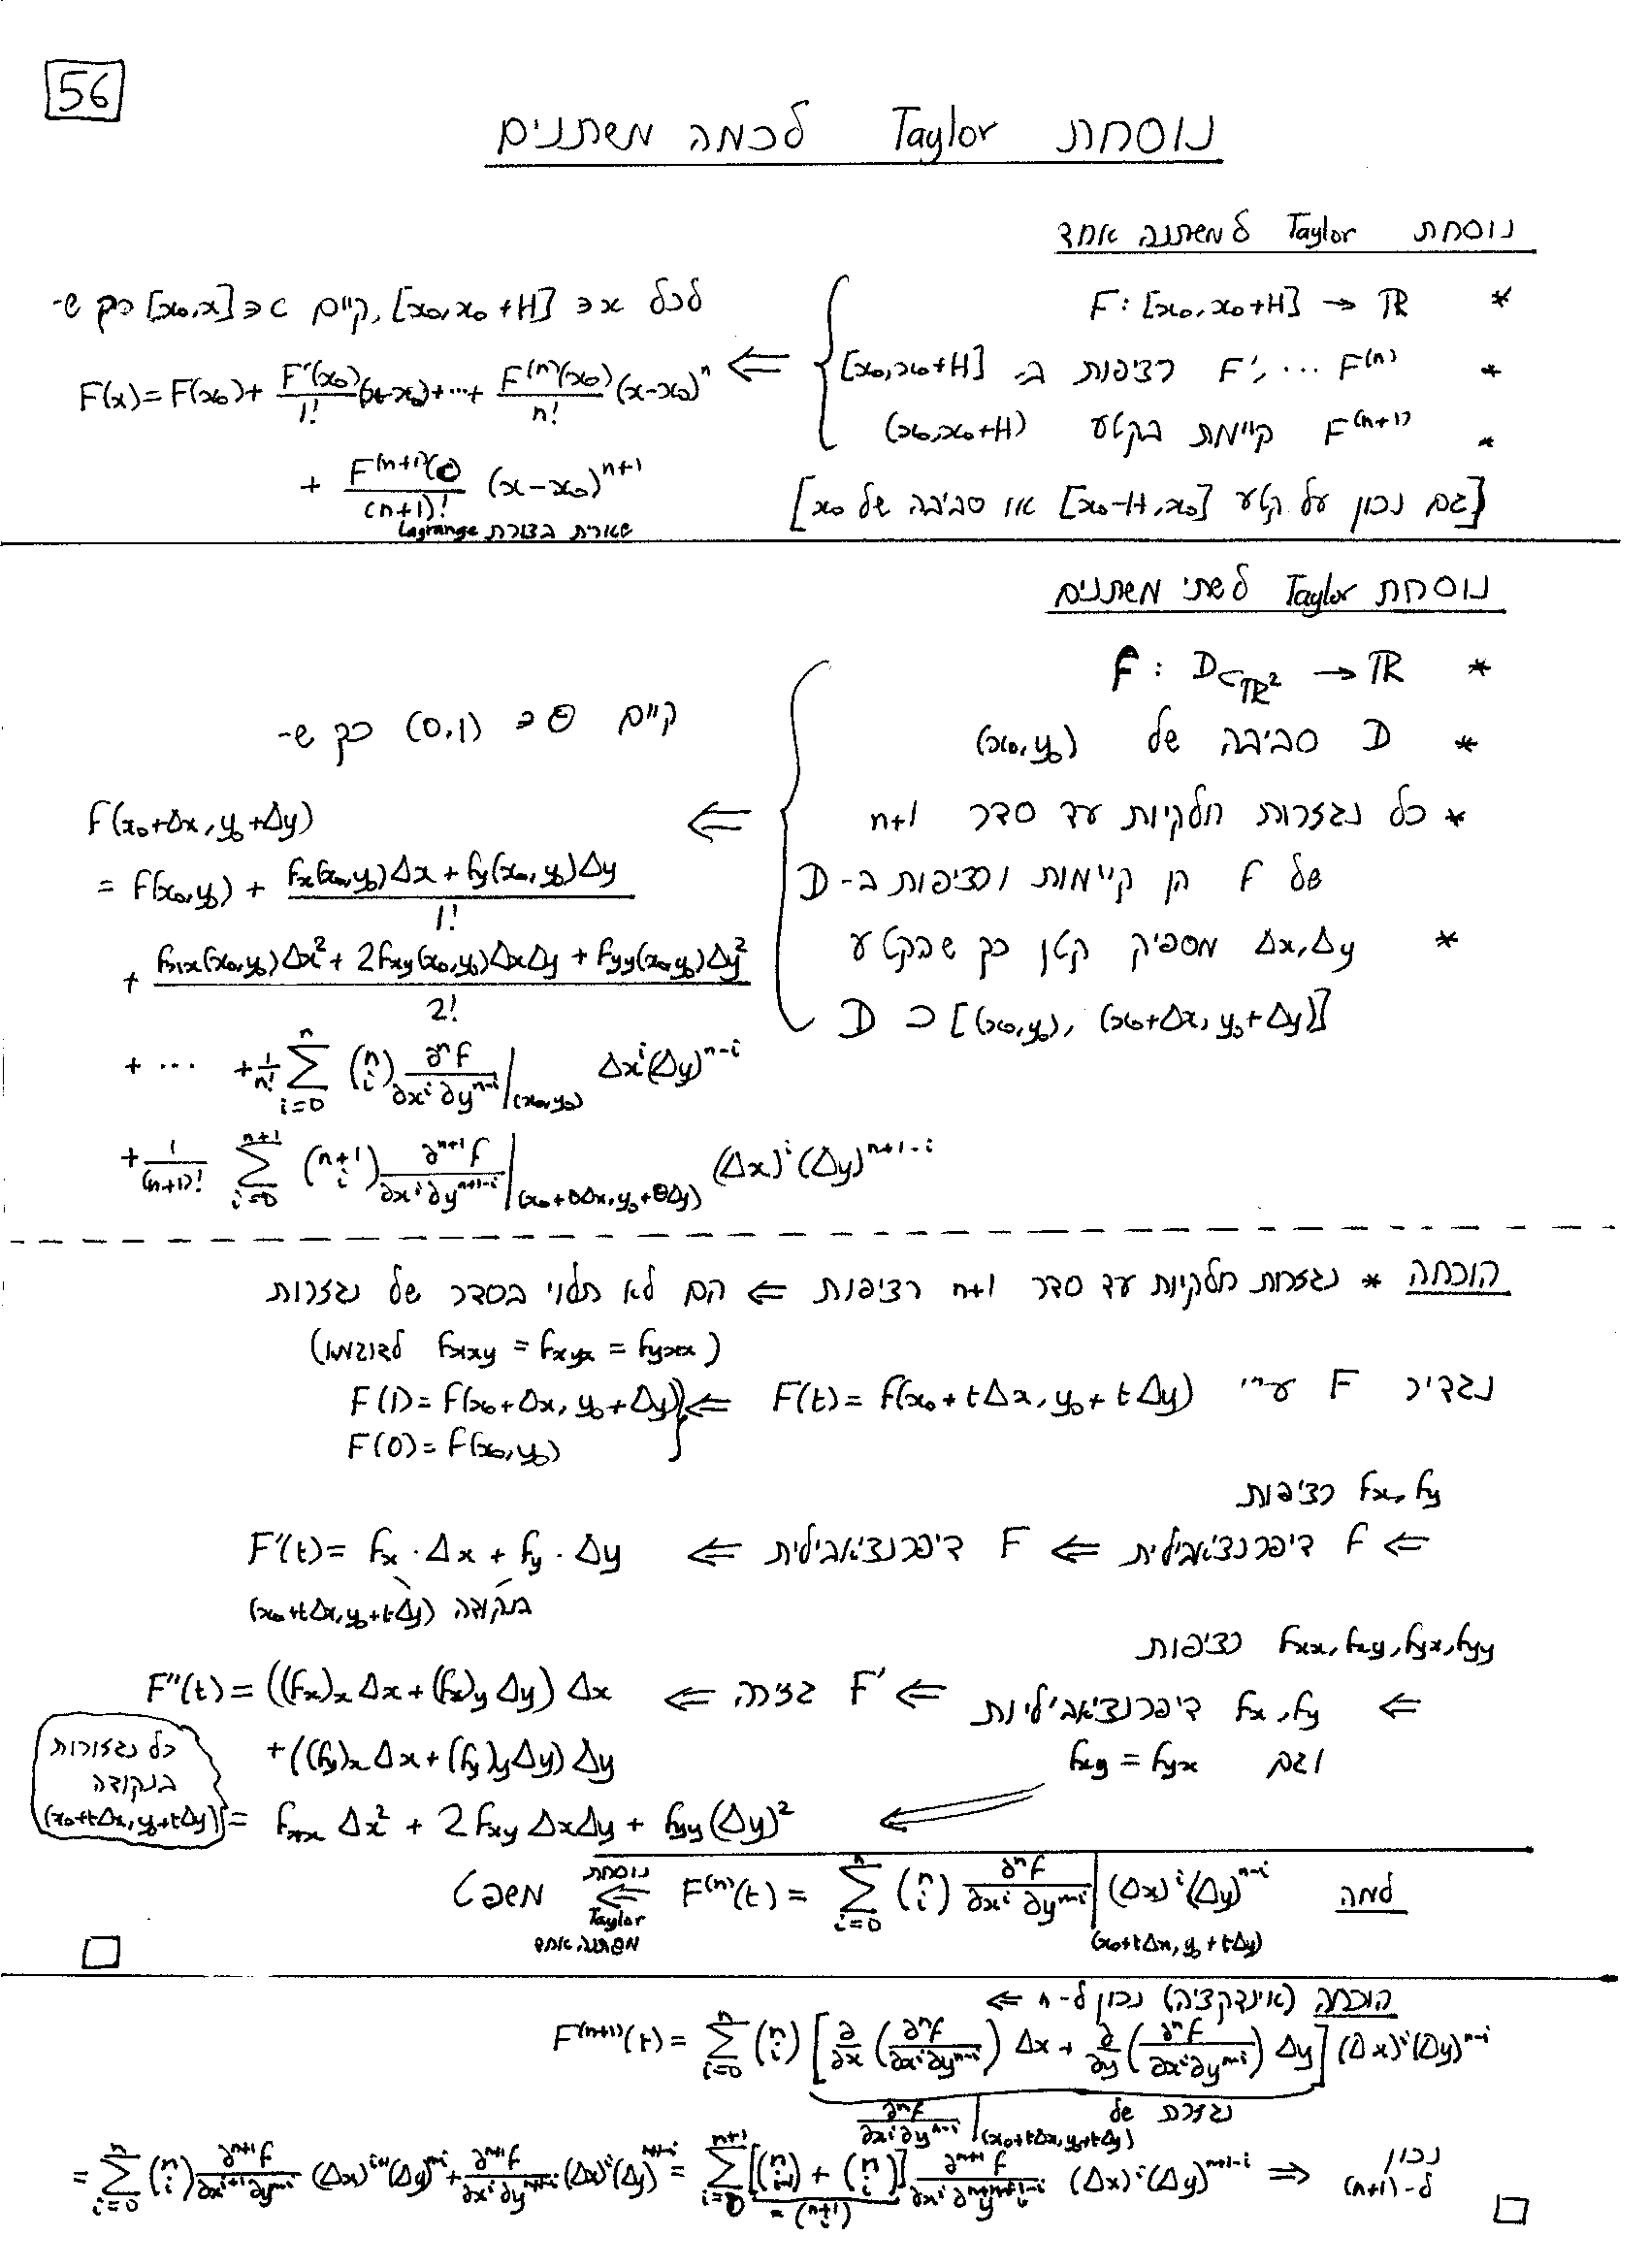 56
נוסחת Taylor לכמה משתנים
נוסחת Taylor למשתנה אחד
* F: [x₀, x₀+H] → ℝ
* F', ... F⁽ⁿ⁾ רציפות ב- [x₀, x₀+H]
* F⁽ⁿ⁺¹⁾ קיימת בקטע (x₀, x₀+H)
[גם נכון על קטע [x₀-H, x₀] או סביבה של x₀]
⇐ לכל x ∋ [x₀, x₀+H], קיים c ∋ [x₀, x] כך ש-
F(x) = F(x₀) + F'(x₀)/1! (x-x₀) + ... + F⁽ⁿ⁾(x₀)/n! (x-x₀)ⁿ
+ F⁽ⁿ⁺¹⁾(c)/(n+1)! (x-x₀)ⁿ⁺¹
שארית בצורת Lagrange
נוסחת Taylor לשתי משתנים
* f : D⊂ℝ² → ℝ
* D סביבה של (x₀, y₀)
* כל נגזרות חלקיות עד סדר n+1
של f הן קיימות ורציפות ב-D
* Δx, Δy מספיק קטן כך שבקטע
[(x₀,y₀), (x₀+Δx, y₀+Δy)] ⊂ D
⇐ קיים θ ∋ (0,1) כך ש-
f(x₀+Δx, y₀+Δy)
= f(x₀,y₀) + (fx(x₀,y₀)Δx + fy(x₀,y₀)Δy)/1!
+ (fxx(x₀,y₀)Δx² + 2fxy(x₀,y₀)ΔxΔy + fyy(x₀,y₀)Δy²)/2!
+ ... + 1/n! Σ_{i=0}^{n} (n i) ∂ⁿf/∂xⁱ∂yⁿ⁻ⁱ |_(x₀,y₀) Δxⁱ(Δy)ⁿ⁻ⁱ
+ 1/(n+1)! Σ_{i=0}^{n+1} (n+1 i) ∂ⁿ⁺¹f/∂xⁱ∂yⁿ⁺¹⁻ⁱ |_(x₀+θΔx, y₀+θΔy) (Δx)ⁱ(Δy)ⁿ⁺¹⁻ⁱ
הוכחה * נגזרות חלקיות עד סדר n+1 רציפות ⇐ הם לא תלוי בסדר של נגזרות
(לדוגמא fxxy = fxyx = fyxx)
נגדיר F ע"י F(t) = f(x₀+tΔx, y₀+tΔy) ⇐ F(1) = f(x₀+Δx, y₀+Δy)
F(0) = f(x₀,y₀)
fx, fy רציפות
⇐ f דיפרנציאבילית ⇐ F דיפרנציאבילית ⇐ F'(t) = fx · Δx + fy · Δy
בנקודה (x₀+tΔx, y₀+tΔy)
fxx, fxy, fyx, fyy רציפות
⇐ fx, fy דיפרנציאביליות ⇐ F' גזירה ⇐ F''(t) = ((fx)x Δx + (fx)y Δy) Δx
וגם fxy = fyx
+ ((fy)x Δx + (fy)y Δy) Δy
⇐ = fxx Δx² + 2fxy ΔxΔy + fyy (Δy)²
כל נגזרות
בנקודה
(x₀+tΔx, y₀+tΔy)
למה F⁽ⁿ⁾(t) = Σ_{i=0}^{n} (n i) ∂ⁿf/∂xⁱ∂yⁿ⁻ⁱ |_(x₀+tΔx, y₀+tΔy) (Δx)ⁱ(Δy)ⁿ⁻ⁱ ⇐ משפט
נוסחת
Taylor
משתנה אחד
הוכחה (אינדקציה) נכון ל-n ⇐
F⁽ⁿ⁺¹⁾(t) = Σ_{i=0}^{n} (n i) [∂/∂x (∂ⁿf/∂xⁱ∂yⁿ⁻ⁱ) Δx + ∂/∂y (∂ⁿf/∂xⁱ∂yⁿ⁻ⁱ) Δy] (Δx)ⁱ(Δy)ⁿ⁻ⁱ
נגזרת של ∂ⁿf/∂xⁱ∂yⁿ⁻ⁱ |_(x₀+tΔx, y₀+tΔy)
= Σ_{i=0}^{n} (n i) ∂ⁿ⁺¹f/∂xⁱ⁺¹∂yⁿ⁻ⁱ (Δx)ⁱ⁺¹(Δy)ⁿ⁻ⁱ + ∂ⁿ⁺¹f/∂xⁱ∂yⁿ⁺¹⁻ⁱ (Δx)ⁱ(Δy)ⁿ⁺¹⁻ⁱ = Σ_{i=0}^{n+1} [(n i-1) + (n i)] ∂ⁿ⁺¹f/∂xⁱ∂yⁿ⁺¹⁻ⁱ (Δx)ⁱ(Δy)ⁿ⁺¹⁻ⁱ ⇒ נכון ל-(n+1)
= (n+1 i)